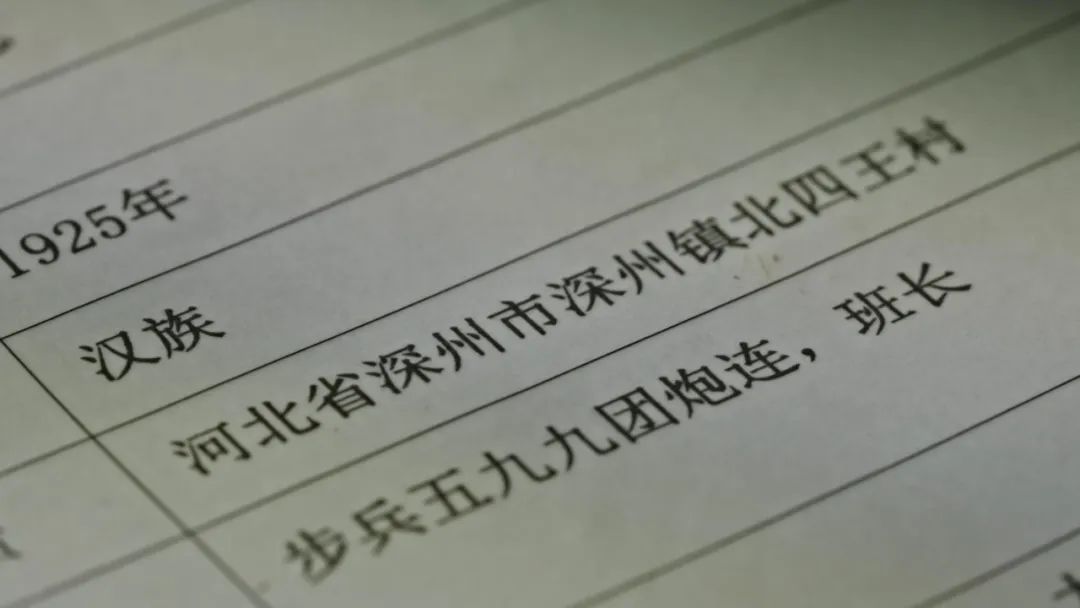 1925年
汉族
河北省深州市深州镇北四王村
步兵五九九团炮连，班长